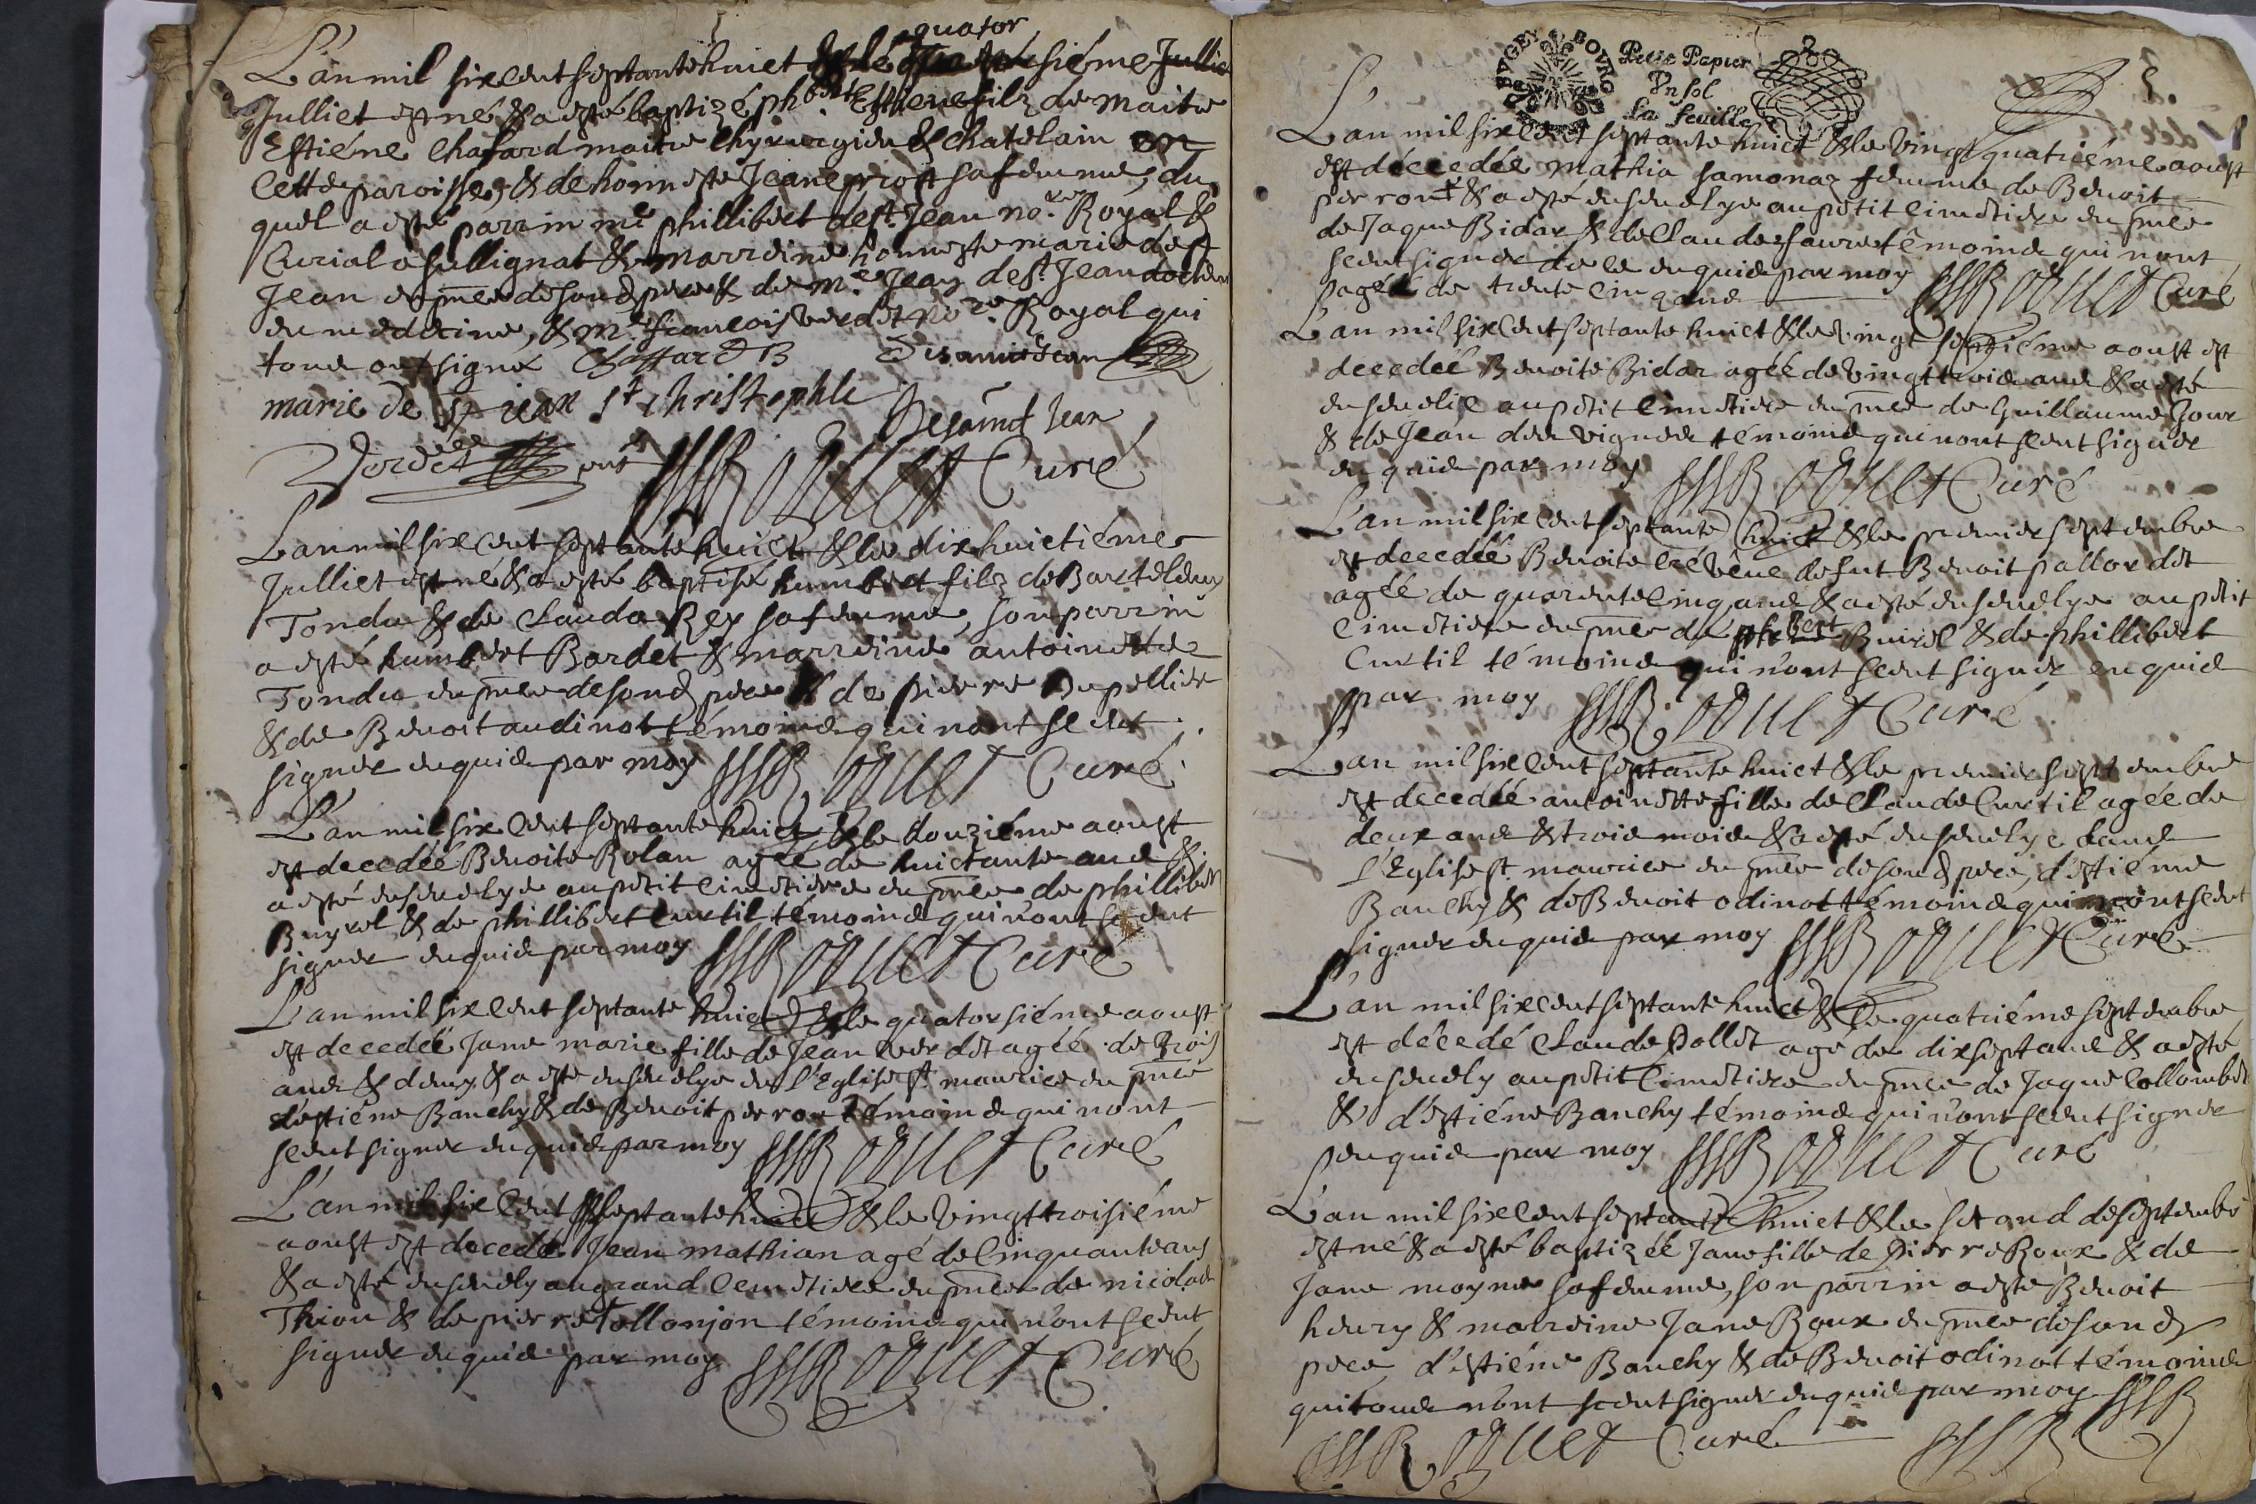 quator
L'an mil six cent septante huict & le siéme Jullie
Julliet est né & a esté baptizé ph.bert Estiene filz de maitre
Estiéne Chafard maitre chyrurgien & chatelain en
cette paroisse, & de honneste Jeane prost sa femme, du
quel a esté parrin me phillibert de st Jean no.re Royal &
Curial a Sullignat & marreine honneste marie de st
Jean en pnce de sond pere & de m.e Jean de st Jean docteur
en medecine, & m.e francois verdet no.re Royal qui
tous ont signé Chaffard B Desainctjean
marie de st jean st christophle
Desainct Jean
Verdet
Curé
L'an mil six cent septante huict & le dix huictiéme
Julliet est né & a esté baptisé humbert filz de Bartelemy
Tondu & de Clauda Rey sa femme, son parrin
a esté humbert Bordet & marreine antoinette
Tondu en pnce de sond pere & de pierre Dupellier
& de Benoit audinot témoins qui nont sceut
signer enquis par moy Curé
L'an mil six cent septante huict & le douziéme aoust
est decedée Benoite Rolan agée de huictante ans &
a esté ensevelye au petit cimetiere en pnce de phillibert
Buyret & de phillibert Curtil témoins qui n'ont sceut
signer enquis par moy Curé
L'an mil six cent septante huict & le quatorsiéme aoust
est decedée Jane marie fille de Jean verdet agée de trois
ans & demy & a esté ensevelye en l'Eglise st maurice en pnce
d'estiéne Banchy & de Benoit perrot témoins qui nont
sceut signer enquis par moy Curé
L'an mil six cent septante huict & le vingt troisiéme
aoust est decedé Jean mathian agé de cinquante ans
& a esté ensevely au grand cemetiere en pnce de nicolas
Thion & de pierre Tollonjon témoins qui n'ont sceut
signer enquis par moy Curé
BVGEY BOVRG
Petit Papier
Vn sol
La feuille
L'an mil six cent septante huict & le vingt quatriéme aoust
est décedée mathia samonaz femme de Benoit
perront & a esté ensevelye au petit cimetiere en pnce
de Jaque Bidar & de Claude faure témoins qui nont
sceut signer de ce enquis par moy
agée de trente cinq ans Curé
L'an mil six cent septante huict & le vingt septiéme aoust est
decedée Benoite Bidar agée de vingt trois ans & a esté
ensevelie au petit cimetiere en pnce de Guillaume Jour
& de Jean des vignes témoins qui nont sceut signer
enquis par moy Curé
L'an mil six cent septante huict & le premier septembre
est decedée Benoite vêve de fut Benoit pallordet
agée de quarente cinq ans & a esté ensevelye au petit
cimetiere en pnce de phbert Buirel & de phillibert
Curtil témoins qui n'ont sceut signer enquis
par moy Curé
L'an mil six cent septante huict & le premier septembre
est decedée antoinette fille de Claude Curtil agée de
deux ans & trois mois & a esté ensevelye dans
l'Eglise st maurice en pnce de sond pere, d'estiéne
Banchy & de Benoit odinot témoins qui n'ont sceut
signer enquis par moy Curé
L'an mil six cent septante huict & le quatriéme septembre
est décedé Claude Pollet agé de dix sept ans & a esté
ensevely au petit cimetiere en pnce de Jaque Collombet
& d'estiéne Banchy témoins qui n'ont sceut signer
enquis par moy Curé
L'an mil six cent septante huict & le second de septembre
est né & a esté baptizée Jane fille de Pierre Roux & de
Jane moyne sa femme, son parrin a esté Benoit
henry & marreine Jane Roux en pnce de sond
pere, d'estiéne Banchy & de Benoit odinot témoins
qui tous n'ont sceut signer enquis par moy
Curé